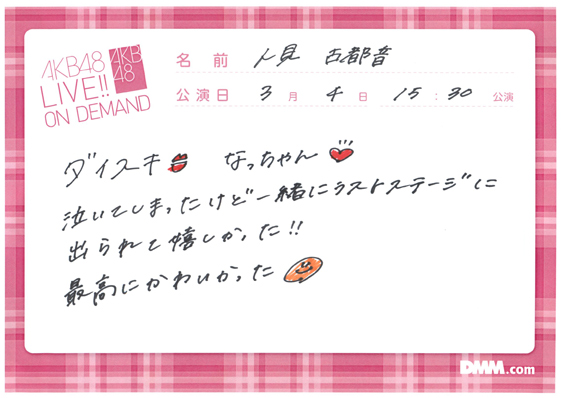 AKB48
LIVE!!
ON DEMAND
AKB
48
名前 人見 古都音
公演日 3月 4日 15:30 公演
ダイスキ なっちゃん
泣いてしまったけど一緒にラストステージに
出られて嬉しかった!!
最高にかわいかった
DMM.com